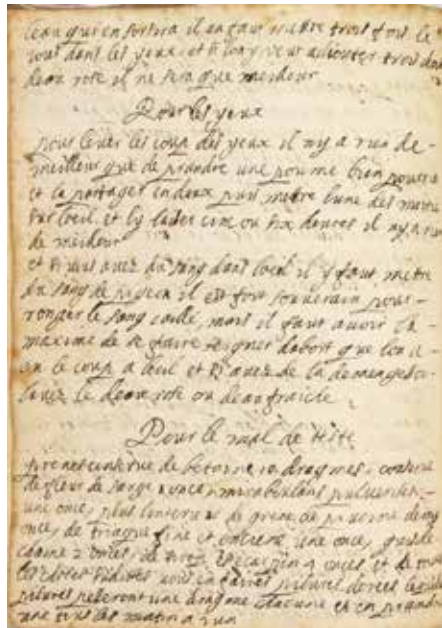 leau qui en sortira il en faut mettre trois fois le
jour dans les yeux, et si lon y veut adiouter trois dois
deau rose il ne sera que meideur
Pour les yeux
pour lever les coup des yeux il ny a rien de-
meilleur que de prandre une pomme bien pourrie
et la partager en deux puis metre lune des moitie
sur loeil et ly laisser cinc ou six heures il ny a rien
de meideur
et si vous avez du sang dans loeil il y faut metre
du sang de pigeon il est fort souverain pour-
ronger le sang caillé, mais il faut avoir la-
maxime de se faire seigner dabort que lon a-
eu le coup a leuil et si avez de la demangeson
lavez le deau rose ou deau fraiche
Pour le mal de teste
prenes conserve de betoine 10 dragmes, conserve
de fleur de sauge once, mirabolans pulverises
une once, plus de grene de demy
once, de triaque fine et une once,
2 onces, de onces et de
pilures dorees
pilures peseront une dragme chacune et en prandre
une tous les matin a